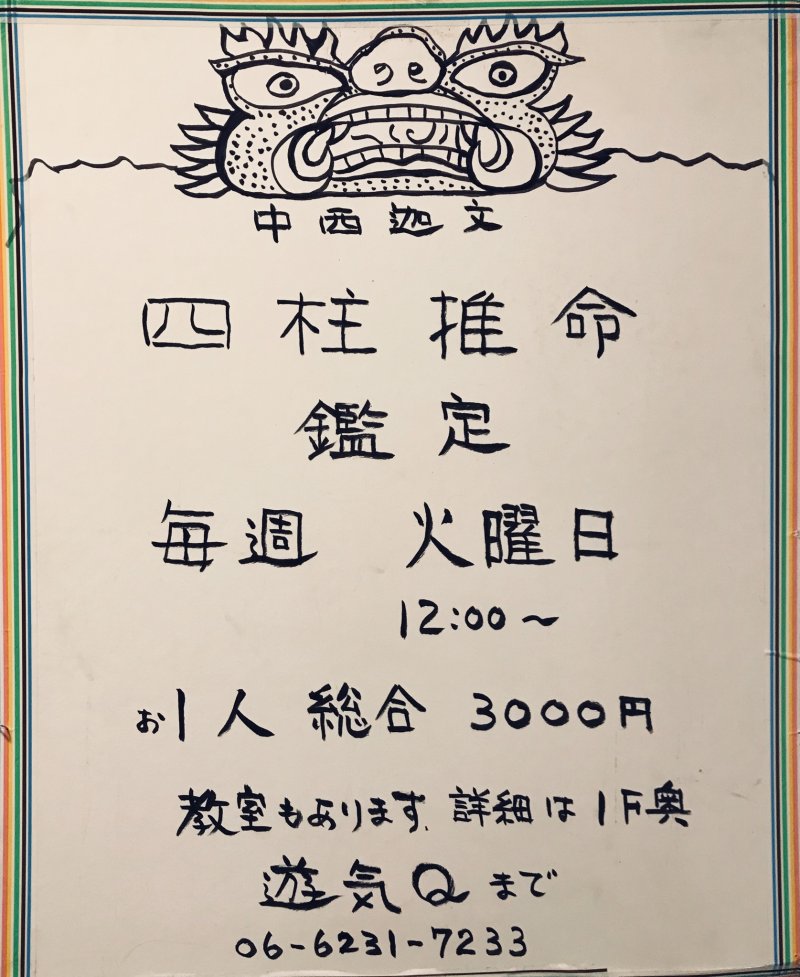 中西迦文
四柱推命
鑑定
毎週 火曜日
12:00〜
お1人 総合 3000円
教室もあります。詳細は1F奥
遊気Qまで
06-6231-7233